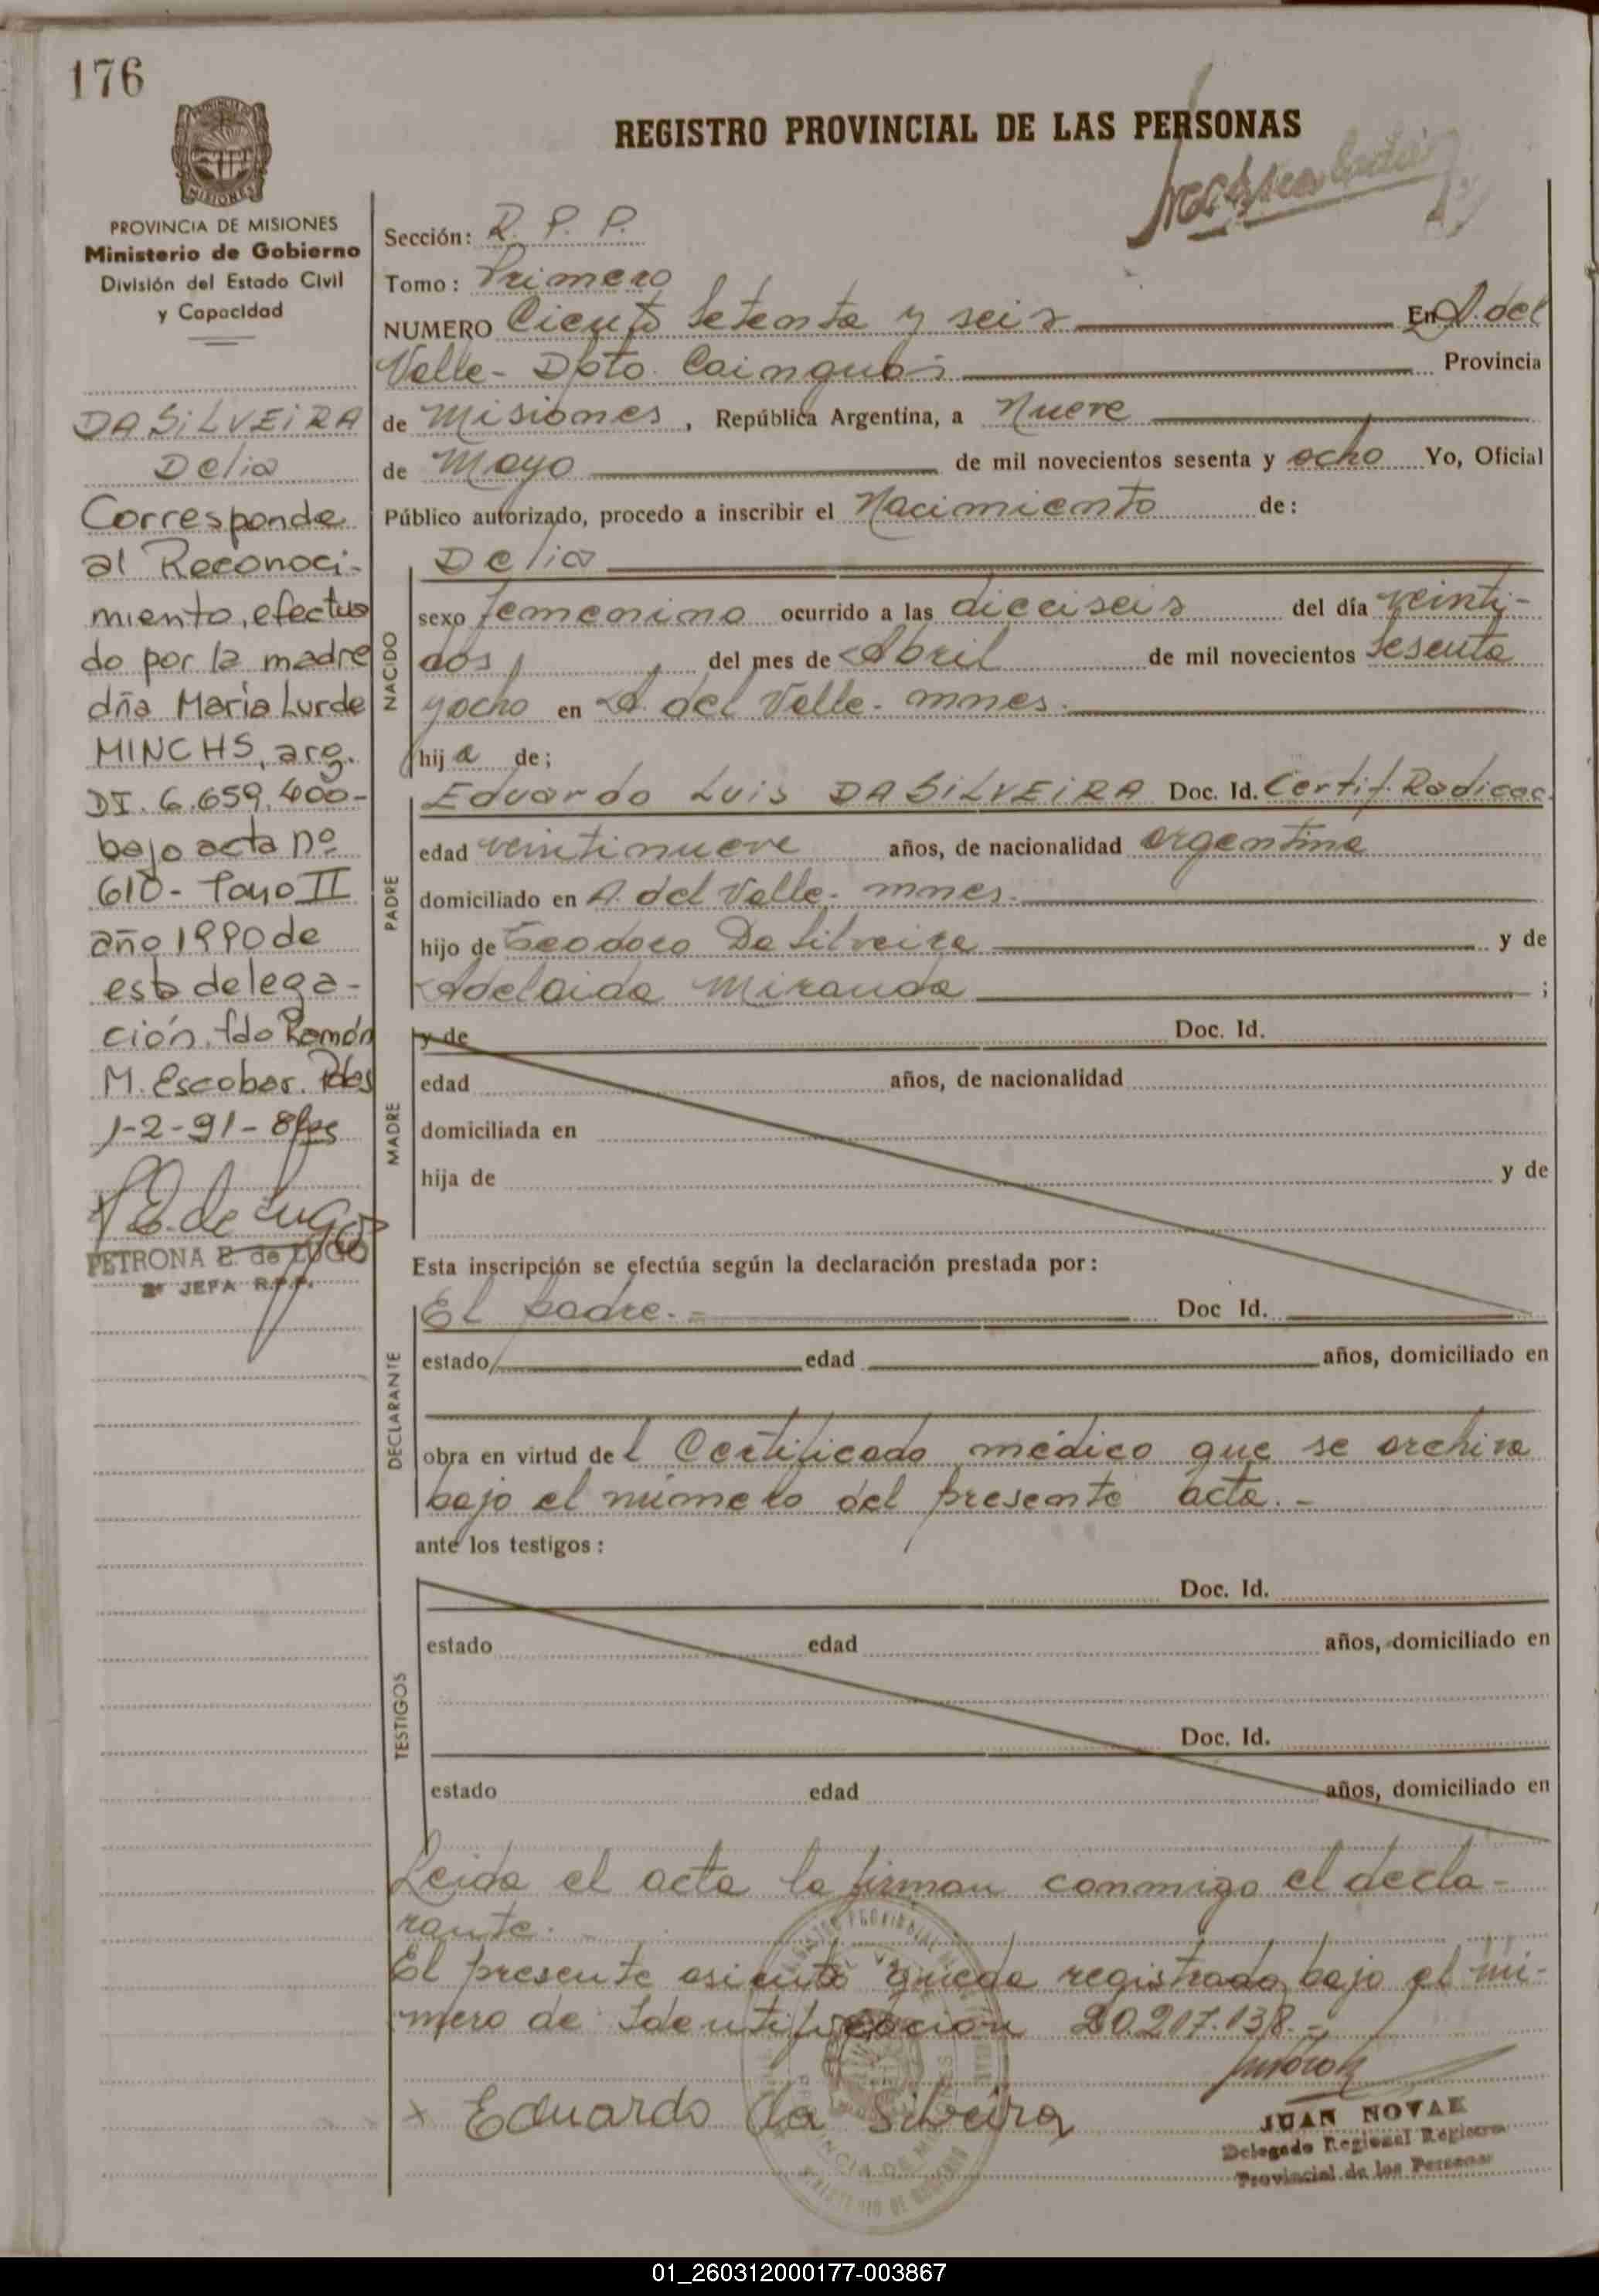 176
REGISTRO PROVINCIAL DE LAS PERSONAS
PROVINCIA DE MISIONES
Ministerio de Gobierno
División del Estado Civil
y Capacidad
DA SiLVEiRA
Delia
Corresponde
al Reconoci-
miento, efectua
do por la madre
dña Maria Lurde
MINCHS, arg.
DI. 6.659.400-
bajo acta nº
610- Tomo II
año 1990 de
esta delega-
ción. fdo Ramón
M. Escobar. Pdas
1-2-91-
P E. de Lugo
PETRONA E. de LUGO
2ª JEFA R.P.P.
Sección: R. P. P.
Tomo: Primero
NUMERO Ciento Setenta y seis En A. del
Valle - Dpto. Cainguás Provincia
de Misiones, República Argentina, a Nueve
de Mayo de mil novecientos sesenta y ocho Yo, Oficial
Público autorizado, procedo a inscribir el Nacimiento de:
NACIDO
Delia
sexo femenino ocurrido a las dieciseis del día veinti-
dos, del mes de Abril de mil novecientos Sesenta
y ocho en A. del Valle - mnes.
hij a de;
PADRE
Eduardo Luis DA SiLVEiRA Doc. Id. Certif. Radicac.
edad veintinueve años, de nacionalidad argentina
domiciliado en A. del Valle - mnes.
hijo de Teodoro Da Silveira y de
Adelaida Miranda ;
MADRE
y de Doc. Id.
edad años, de nacionalidad
domiciliada en
hija de y de
Esta inscripción se efectúa según la declaración prestada por:
DECLARANTE
El padre. - Doc Id.
estado edad años, domiciliado en
obra en virtud de l Certificado médico que se archiva
bajo el número del presente acta. -
ante los testigos:
TESTIGOS
Doc. Id.
estado edad años, domiciliado en
Doc. Id.
estado edad años, domiciliado en
Leida el acta la firman conmigo el decla-
rante. -
El presente asiento queda registrado bajo el nú-
mero de Identificación 20.217.138. -
x Eduardo da Silveira
JUAN NOVAK
Delegado Regional Registro
Provincial de las Personas
01_260312000177-003867